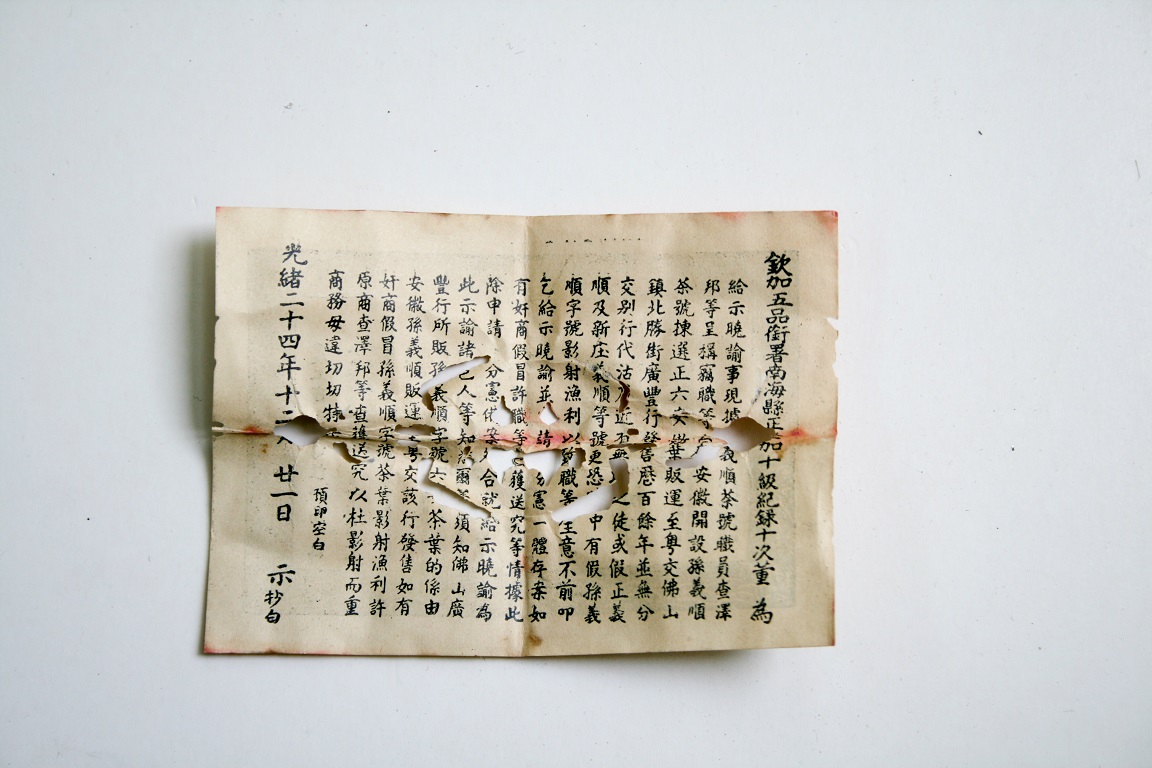 欽加五品銜署南海縣正 加十級紀錄十次董 為
給示曉諭事現據 義順茶號職員查澤
邦等呈稱竊職等 安徽開設孫義順
茶號揀選正六安 葉販運至粵交佛山
鎮北勝街廣豐行發售歷百餘年並無分
交別行代沽 近 之徒或假正義
順及新庄義順等號更恐 中有假孫義
順字號影射漁利以致職等生意不前叩
乞給示曉諭並 請 分憲一體存案如
有奸商假冒許職等 獲送究等情據此
除申請 分憲 合就給示曉諭為
此示諭諸色人等知悉爾等須知佛山廣
豐行所販孫義順字號六 茶葉的係由
安徽孫義順販運 粵交該行發售如有
奸商假冒孫義順字號茶葉影射漁利許
原商查澤邦等查獲送究以杜影射而重
商務毋違切切特
預印空白
光緒二十四年十二 廿一日 示抄白